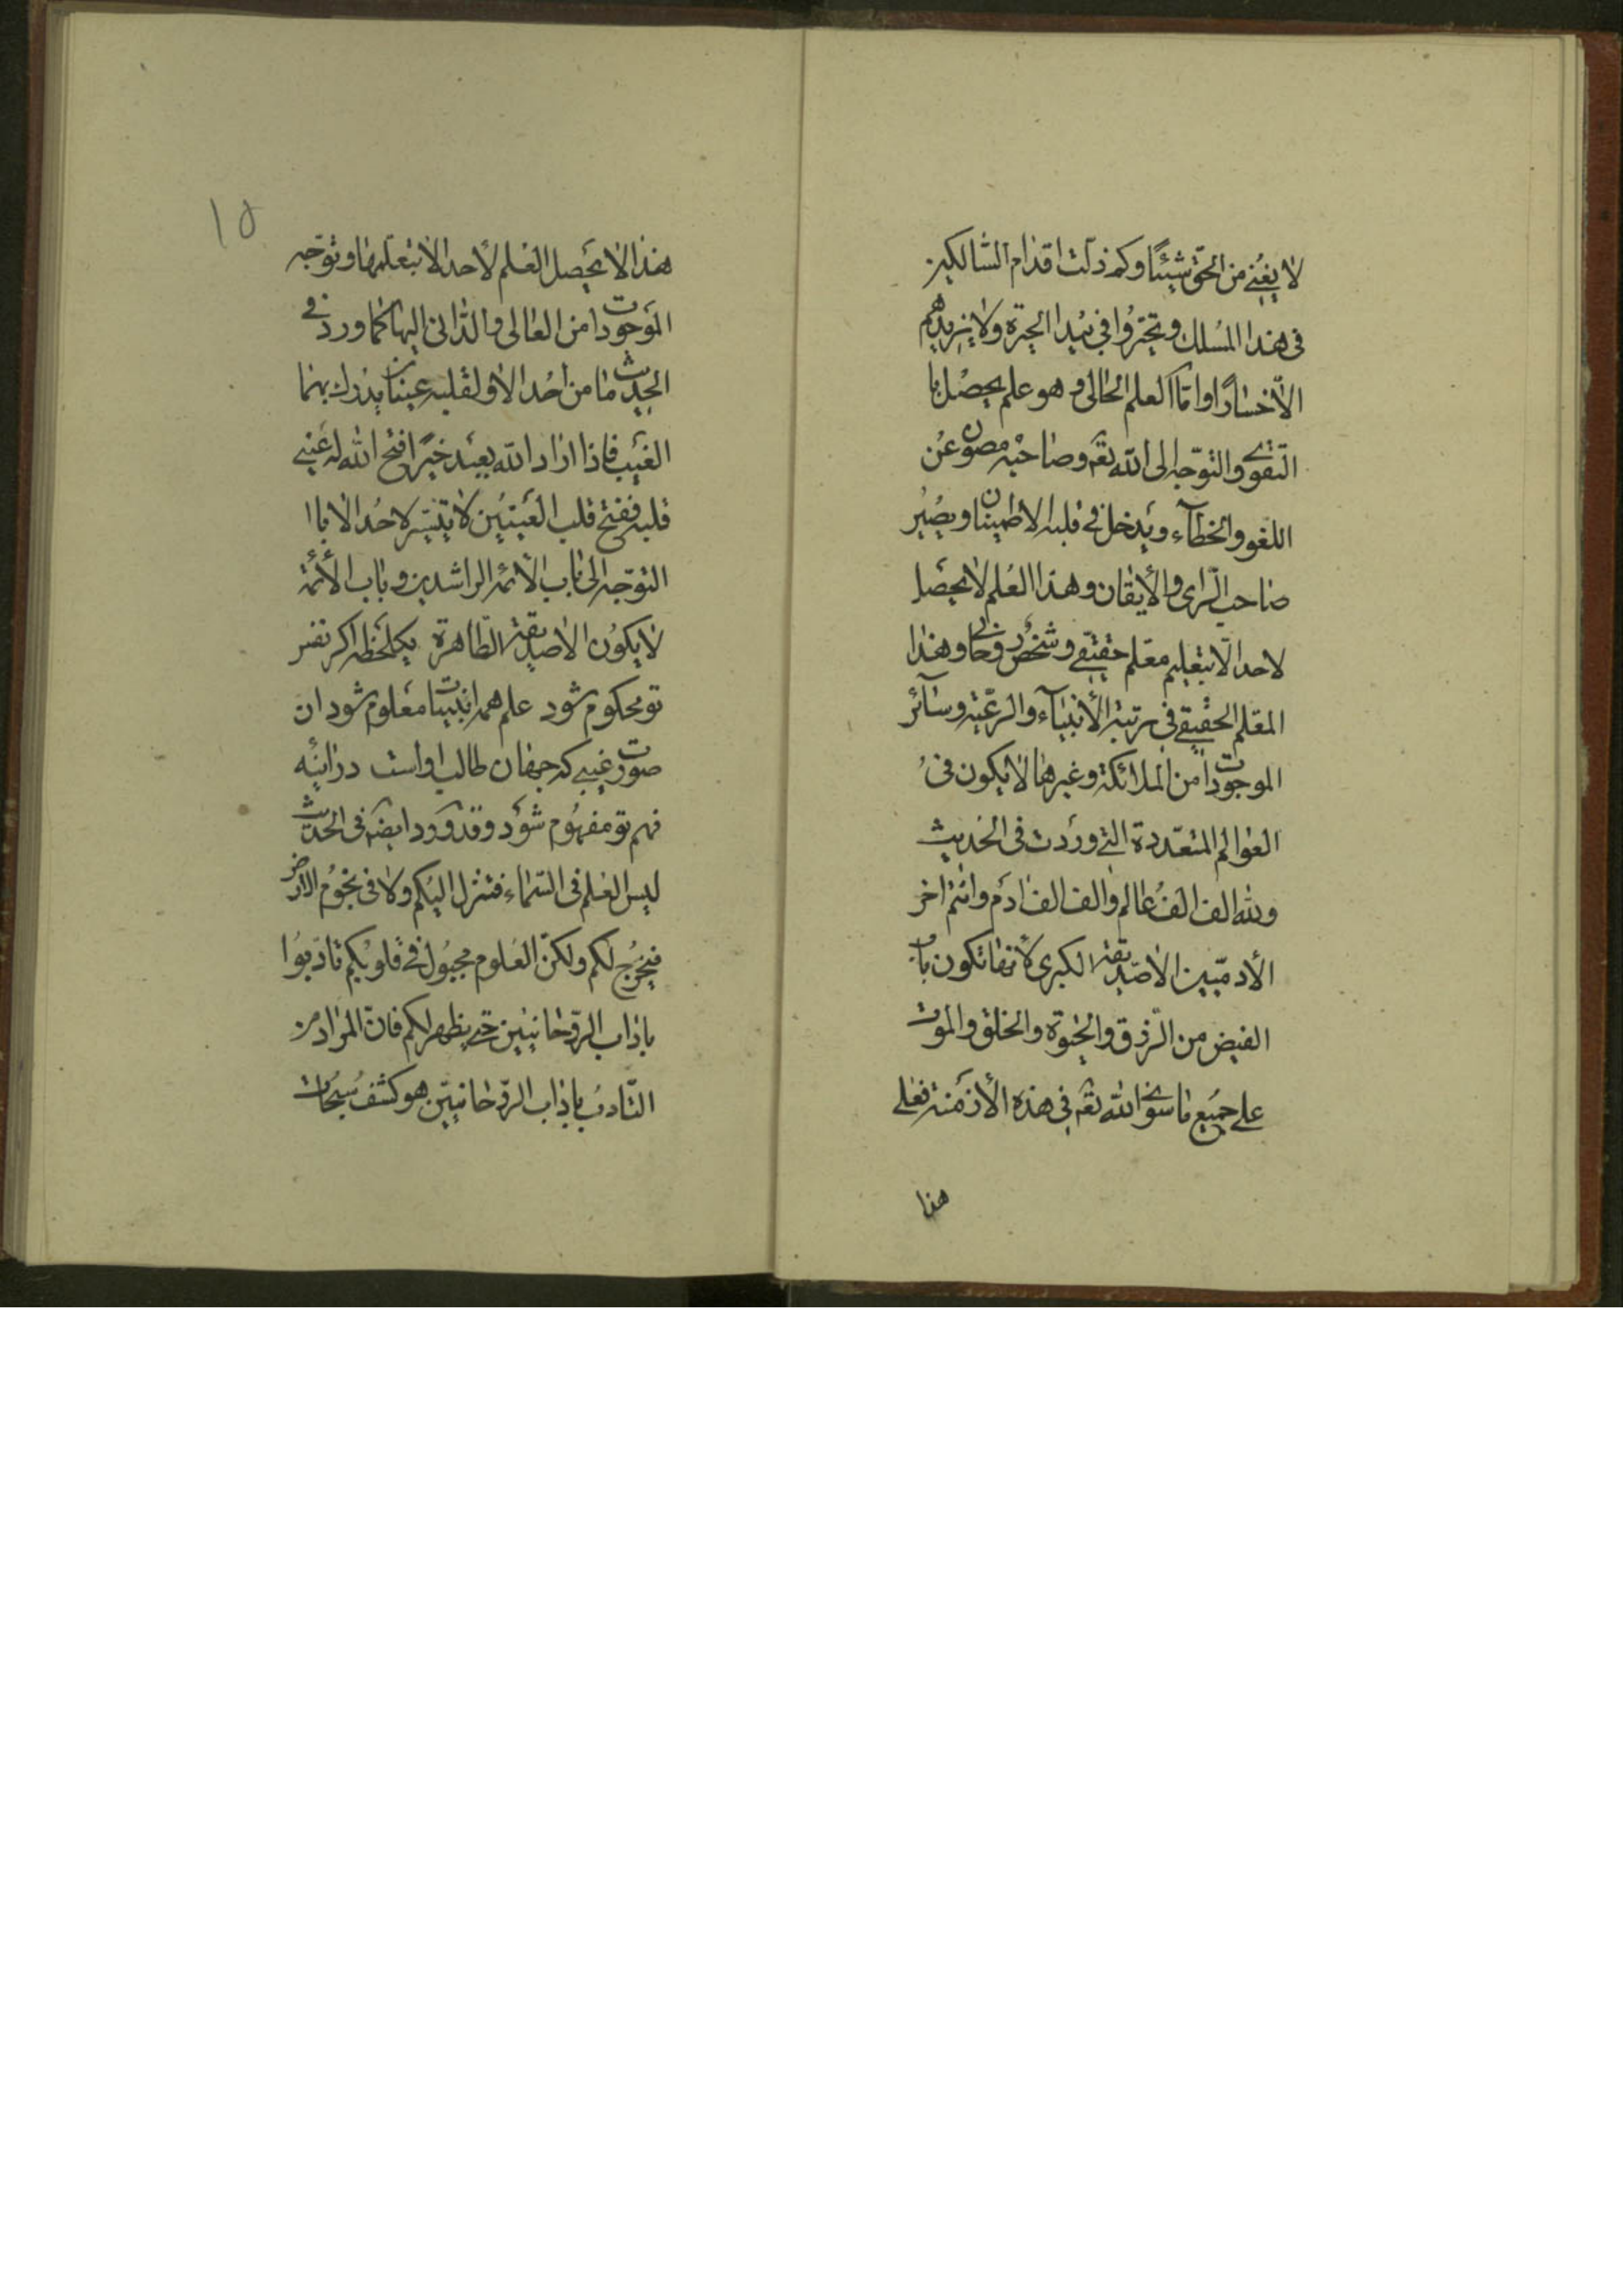 لا يغنى من الحق شيئًا وكم زلت اقدام السالكين
فى هذا المسلك وتحيّروا فى بيداء الحيرة ولا يزيدهم
الّا خسارًا وامّا العلم الحالى و هو علم يحصل با
التقوى والتوجّه الى الله تعه وصاحبه مصون عن
اللغو والخطاء ويدخل فى قلبه الاطمينان ويصير
صاحب الرّاى والأيقان وهذا العلم لا يحصل
لاحد الّا بتعليم معلم حقيقى وشخص روحانى وهذا
المعلم الحقيقى فى مرتبة الأنبياء والرعّية وسآئر
الموجودات من الملائكة وغيرها لا يكون فى
العوالم المتعدّدة التى وردت فى الحديث
ولله الف الف عالم والف الف ادم وانتم اخر
الأدميّين الا صدّيقة الكبرى لأنها تكون باب
الفيض من الرّزق والحيوة والخلق والموت
على جميع ما سوى الله تعه فى هذه الأزمنة فعلى
هذا
١٥
هذا لا يحصل العلم لأحد الا بتعلّمها وتوجّه
الموجودات من العالى والدّانى اليها كما ورد فى
الحديث ما من احد الا ولقلبه عينان يدرك بهما
الغيب فاذا اراد الله بعبد خيرًا فتح الله له عينى
قلبه ففتح قلب العينين لا يتيسّر لاحد الا باا
التوجّه الى باب الأئمه الراشدين و باب الأئمة
لا يكون الا صديقة الطّاهرة يكلحظه اكر نفس
تو محكوم شود علم همه انبيا معلوم شود ان
صورت غيبى كه جهان طالب اواست در اينه
فهم تو مفهوم شود و قد ورد ايضه فى الحديث
ليس العلم فى السّماء فتنزل اليكم ولا فى تخوم الارض
فيخرج لكم ولكنّ العلوم مجبول فى قلوبكم تادّبوا
باداب الرّوحانيين حتى يظهر لكم فانّ المراد من
التّادب باداب الرّوحانيّين هو كشف سبحات